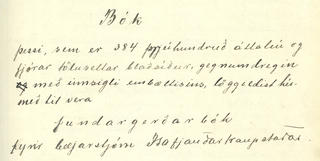 Bók
þessi, sem er 384 þrjúhundruð áttatíu og
fjórar tölusettar blaðsíður, gegnumdregin
með innsigli embættisins, löggildist hér
með til vera
fundargerðarbók
fyrir bæjarstjórn Ísafjarðarkaupstaðar.